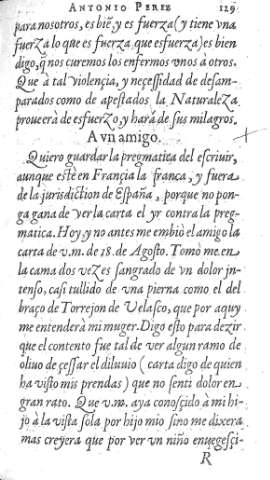 ANTONIO PEREZ 129
para nosotros, es biē, y es fuerza (y tiene vna
fuerZa lo que es fuerza que esfuerza) es bien
digo, q̃ nos curemos los enfermos vnos à otros.
Que à tal violençia, y neçessidad de desam-
parados como de apestados la NaturaleZa
proueerà de esfuerzo, y harà de sus milagros.
A vn amigo.
Quiero guardar la pregmatica del escriuir,
aunque estè en Françia la franca, y fuera
de la jurisdiction de España, porque no pon-
ga gana de ver la carta el yr contra la preg-
matica. Hoy, y no antes me embiò el amigo la
carta de v.m. de 18. de Agosto. Tomòme en
la cama dos vezes sangrado de vn dolor jn-
tenso, casi tullido de vna pierna como el del
braço de Torrejon de Velasco, que por aquy
me entenderà mi muger. Digo esto para dezir
que el contento fue tal de ver algun ramo de
oliuo de çessar el diluuio (carta digo de quien
ha visto mis prendas) que no senti dolor en
gran rato. Que v.m. aya conosçido à mi hi-
jo à la vista sola por hijo mio sino me dixera
mas creyera que por ver vn niño enuegesçi-
R